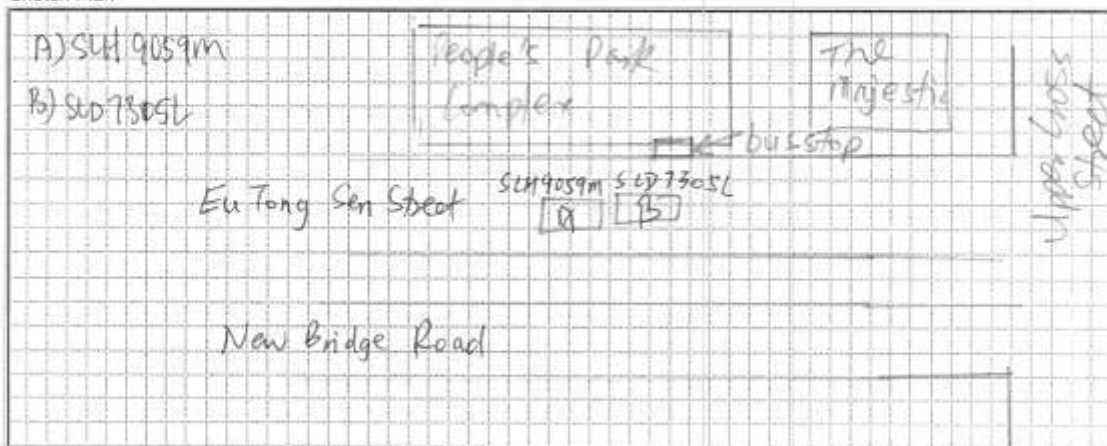 A) SLH 9059m
B) SLD 7305L
People's Park
Complex
The
Majestic
bus stop
Upper Cross
Street
Eu Tong Sen Street
SLH9059m SLD7305L
A B
New Bridge Road